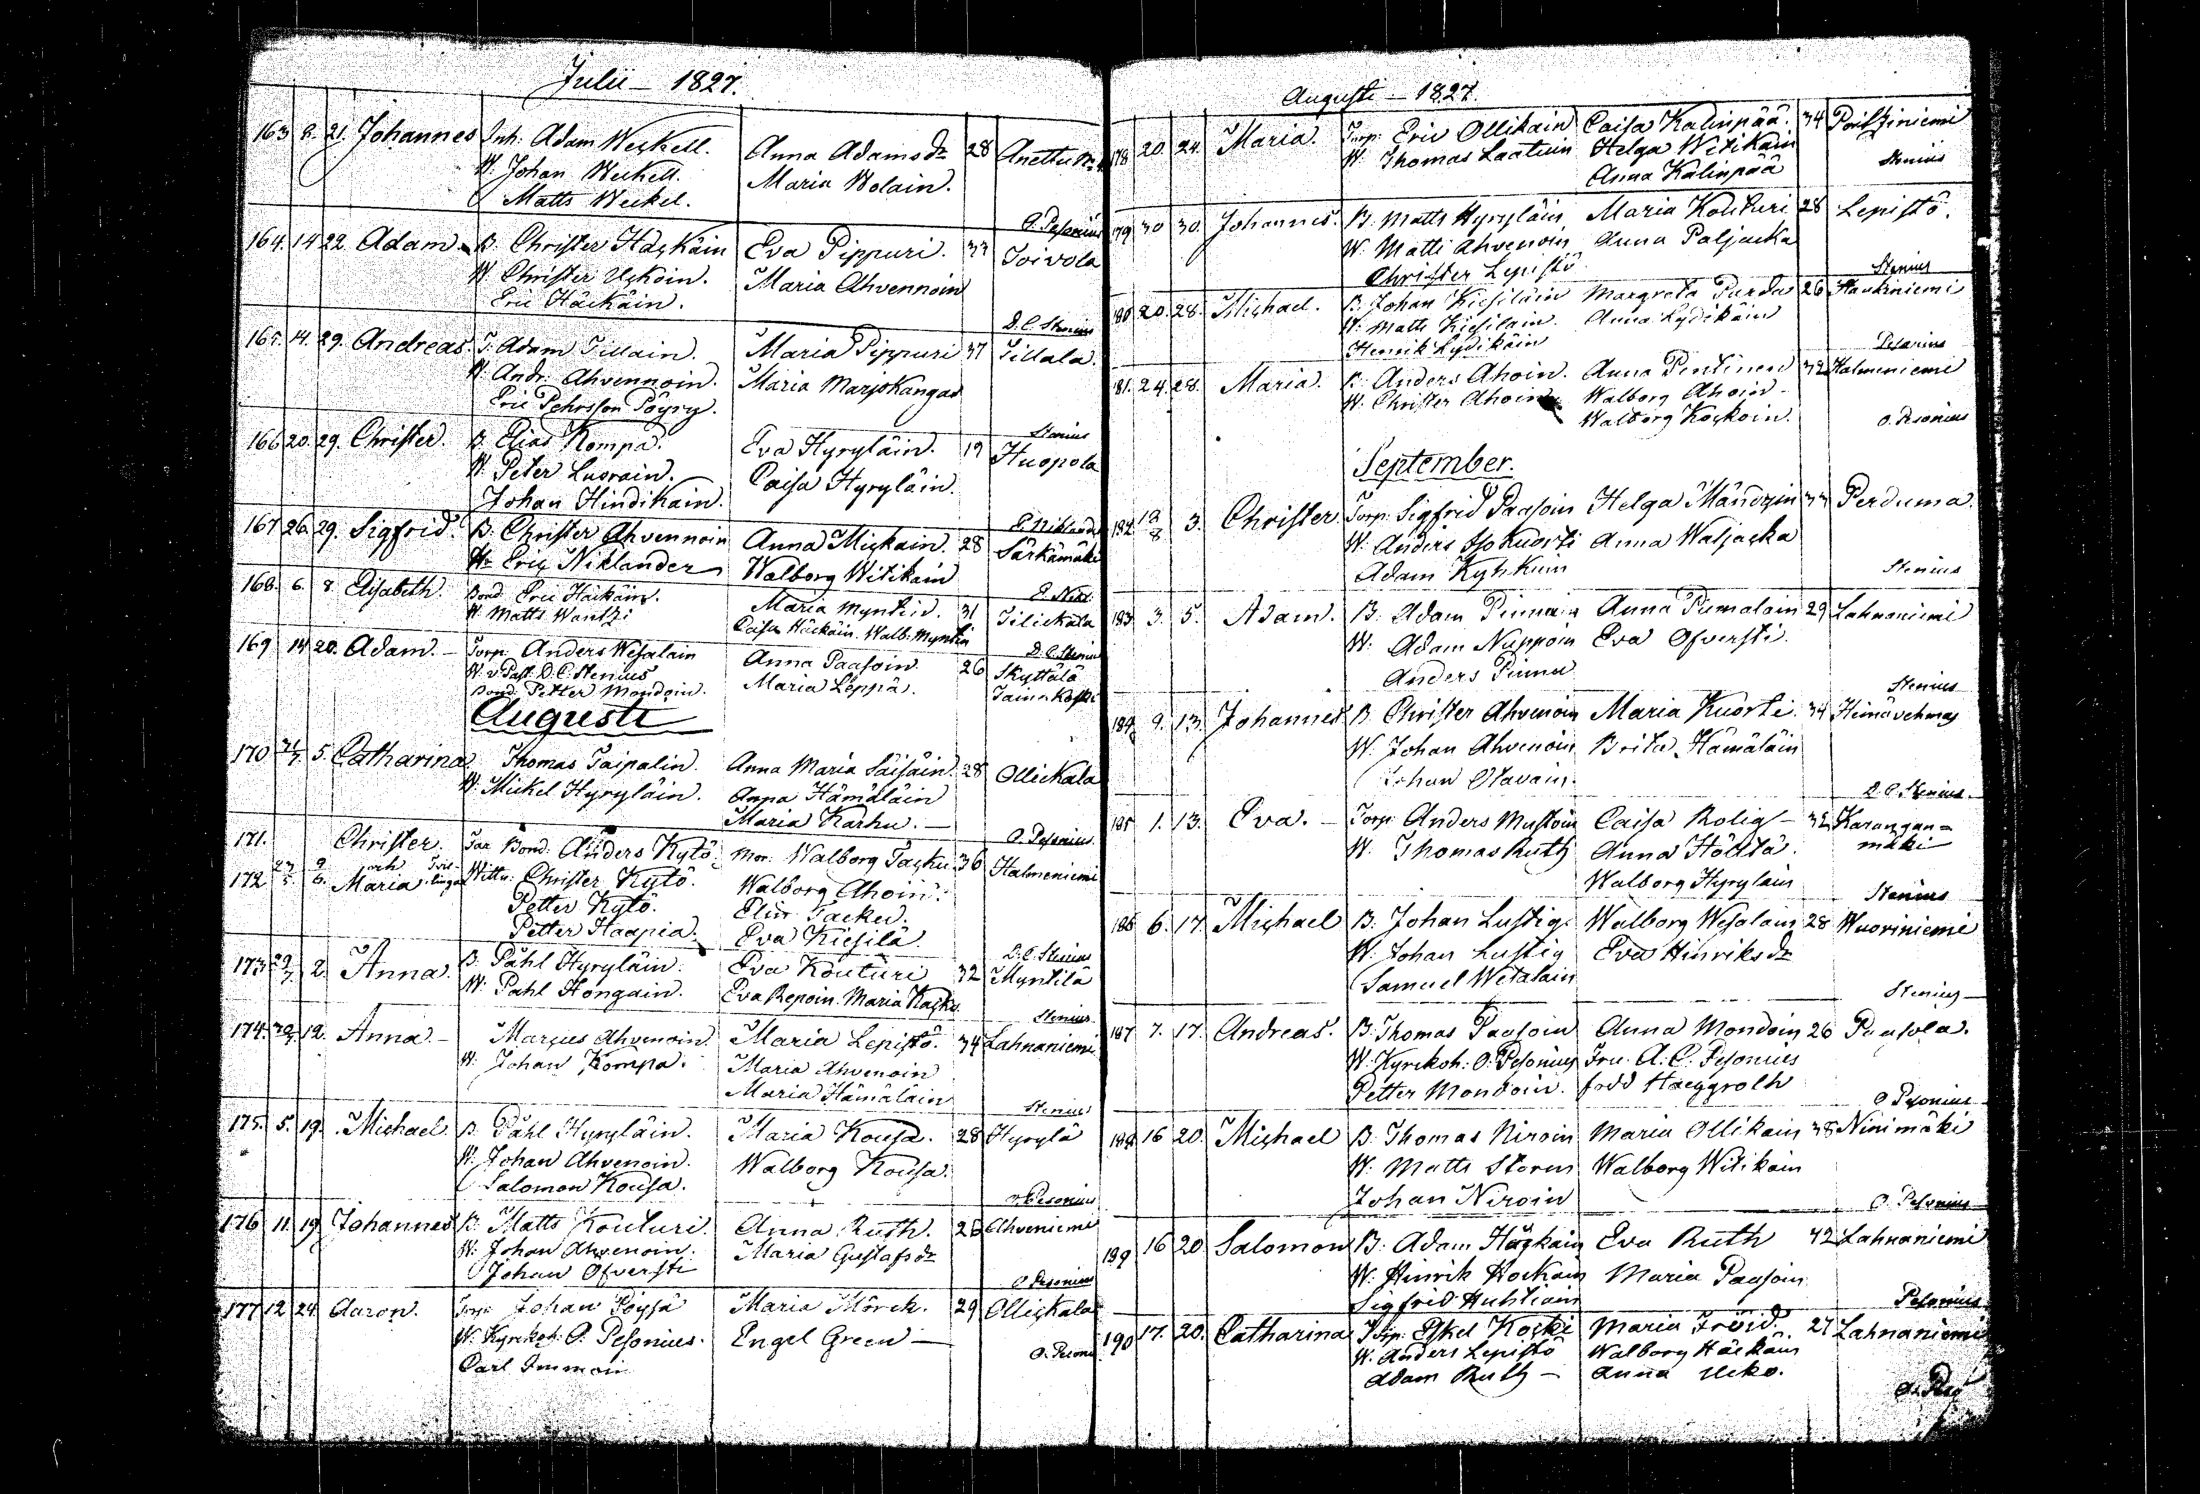 Julii – 1827.
163. 8. 21. Johannes Inh. Adam Weckell. Anna Adamsdr 28
W. Johan Weckell. Maria Wolain.
Matts Weckel.
O. Pesonius
164. 14 22. Adam B. Christer Häckäin Eva Pippuri. 33 Toivola
W. Christer Uckoin. Maria Ahvennoin
Eric Häckäin.
D. C. Stenius
165. 14. 29. Andreas T. Adam Tillain. Maria Pippuri 37 Tillala.
W. Andr. Ahvennoin. Maria Marjokangas
Eric Pehrsson Pöyry.
Stenius
166 20. 29. Christer. B. Elias Kompa. Eva Hyryläin. 19 Huopola
W. Peter Luorain. Caisa Hyryläin.
Johan Hindikain.
E. Niklander
167 26. 29. Sigfrid. B. Christer Ahvennoin Anna Mickain. 28 Särkämäki
W. Eric Niklander Walborg Witikain
E. Nikl.
168. 6. 8. Elisabeth. Bond. Eric Häckäin. Maria Myntin. 31 Tilickala
W. Matts Wantzi Caisa Häckäin. Walb. Myntin
D. C. Stenius
169 14 20. Adam. – Torp. Anders Wesalain Anna Paasoin. 26 Skyttälä
W. v. Past. D. C. Stenius Maria Leppä. Tainakoski
Bond. Petter Mondoin.
Augusti
170 31/7 5. Catharina Thomas Taipalin. Anna Maria Säisäin. 28 Ollickala
W. Mickel Hyryläin. Anna Hämäläin
Maria Karhu. –
O. Pesonius
171. Christer. Far Bond. Anders Kytö. Mor. Walborg Tacku 36 Halmeniemi
och Tvillingar
172 6. Maria Wittn: Christer Kytö. Walborg Ahoin.
Petter Kytö. Elin Tacku.
Petter Haapia. Eva Kiesilä
D. C. Stenius
173 29/7 2. Anna B. Påhl Hyryläin. Eva Kouturi 32 Myntilä
W. Påhl Hongain. Eva Repoin. Maria Kacko
Stenius
174. 12. Anna – Marcus Ahvenoin Maria Lepistö. 34 Lahnaniemi
W. Johan Kompa. Maria Ahvenoin
Maria Hämäläin
Stenius
175. 5. 19. Michael B. Påhl Hyryläin. Maria Kousa. 28 Hyrylä
W. Johan Ahvenoin. Walborg Kousa.
Salomon Kousa.
O. Pesonius
176 11. 19. Johannes B. Matts Kouturi. Anna Ruth. 28 Ahveniemi
W. Johan Ahvenoin. Maria Gustafsdr
Johan Öfversti
O. Pesonius
177 12. 24. Aaron. Torp. Johan Pöysä Maria Mörck. 29 Ollickala
W. Kyrckoh. O. Pesonius. Engel Green –
Carl Immoin
O. Pesoni
Augusti – 1827.
178 20. 24. Maria. Torp. Eric Ollikain Caisa Kalinpää. 34
W. Thomas Laatuin Helga Witikain
Anna Kalinpää
Stenius
179 30 30. Johannes. B. Matts Hyryläin Maria Kouturi 28 Lepistö.
W. Matti Ahvenoin Anna Paljacka
Christer Lepistö
Stenius
180 20. 28. Michael. B. Johan Kiesiläin Margreta Purda 26 Haukiniemi
W. Matts Kiesilain. Anna Lydikäin
Henrik Lydikäin
Pesonius
181. 24. 28. Maria. B. Anders Ahoin. Anna Pentinen 32 Halmeniemi
W. Christer Ahoin Walborg Ahoin –
Walborg Kockoin.
O. Pesonius
September.
182 12/8 3. Christer. Torp. Sigfrid Paasoin Helga Mändyin 33 Perduma.
W. Anders Isokuorti Anna Waljacka
Adam Kyhkuin
Stenius
183 3. 5. Adam. B. Adam Pinnain Anna Pumalain 29 Lahnaniemi
W. Adam Nuppoin Eva Öfversti.
Anders Pinna
Stenius
184 9. 13. Johannes B. Christer Ahvenoin Maria Kuorti. 34 Heinävehmas
W. Johan Ahvenoin Brita Hämäläin
Johan Olavain.
D. C. Stenius –
185 1. 13. Eva. – Torp. Anders Mustoin Caisa Rolig – 32 Karangan=
W. Thomas Ruth Anna Hölttä. mäki –
Walborg Hyryläin
Stenius
186 6. 17. Michael B. Johan Lustig. Walborg Wesalain 28 Wuoriniemi
W. Johan Lustig Eva Hinriksdr
Samuel Wetalain
Stenius –
187 7. 17. Andreas. B. Thomas Paasoin Anna Mondoin 26 Paasola.
W. Kyrckoh. O. Pesonius Fru. A. C. Pesonius
Petter Mondoin. född Haeggroth
O. Pesonius
188 16 20. Michael B. Thomas Niroin Maria Ollikain 38 Ninimäki
W. Matts Storm Walborg Witikain
Johan Niroin
O. Pesonius
189 16 20. Salomon B. Adam Häckain Eva Ruth 42 Lahnaniemi
W. Hinrik Hockain Maria Paasoin
Sigfrid Huhtiain
Pesonius
190 17. 20. Catharina Torp. Eskel Kocki Maria Fröid. 27 Lahnaniemi
W. Anders Lepistö Walborg Häckäin
Adam Ruth – Anna Ucko.